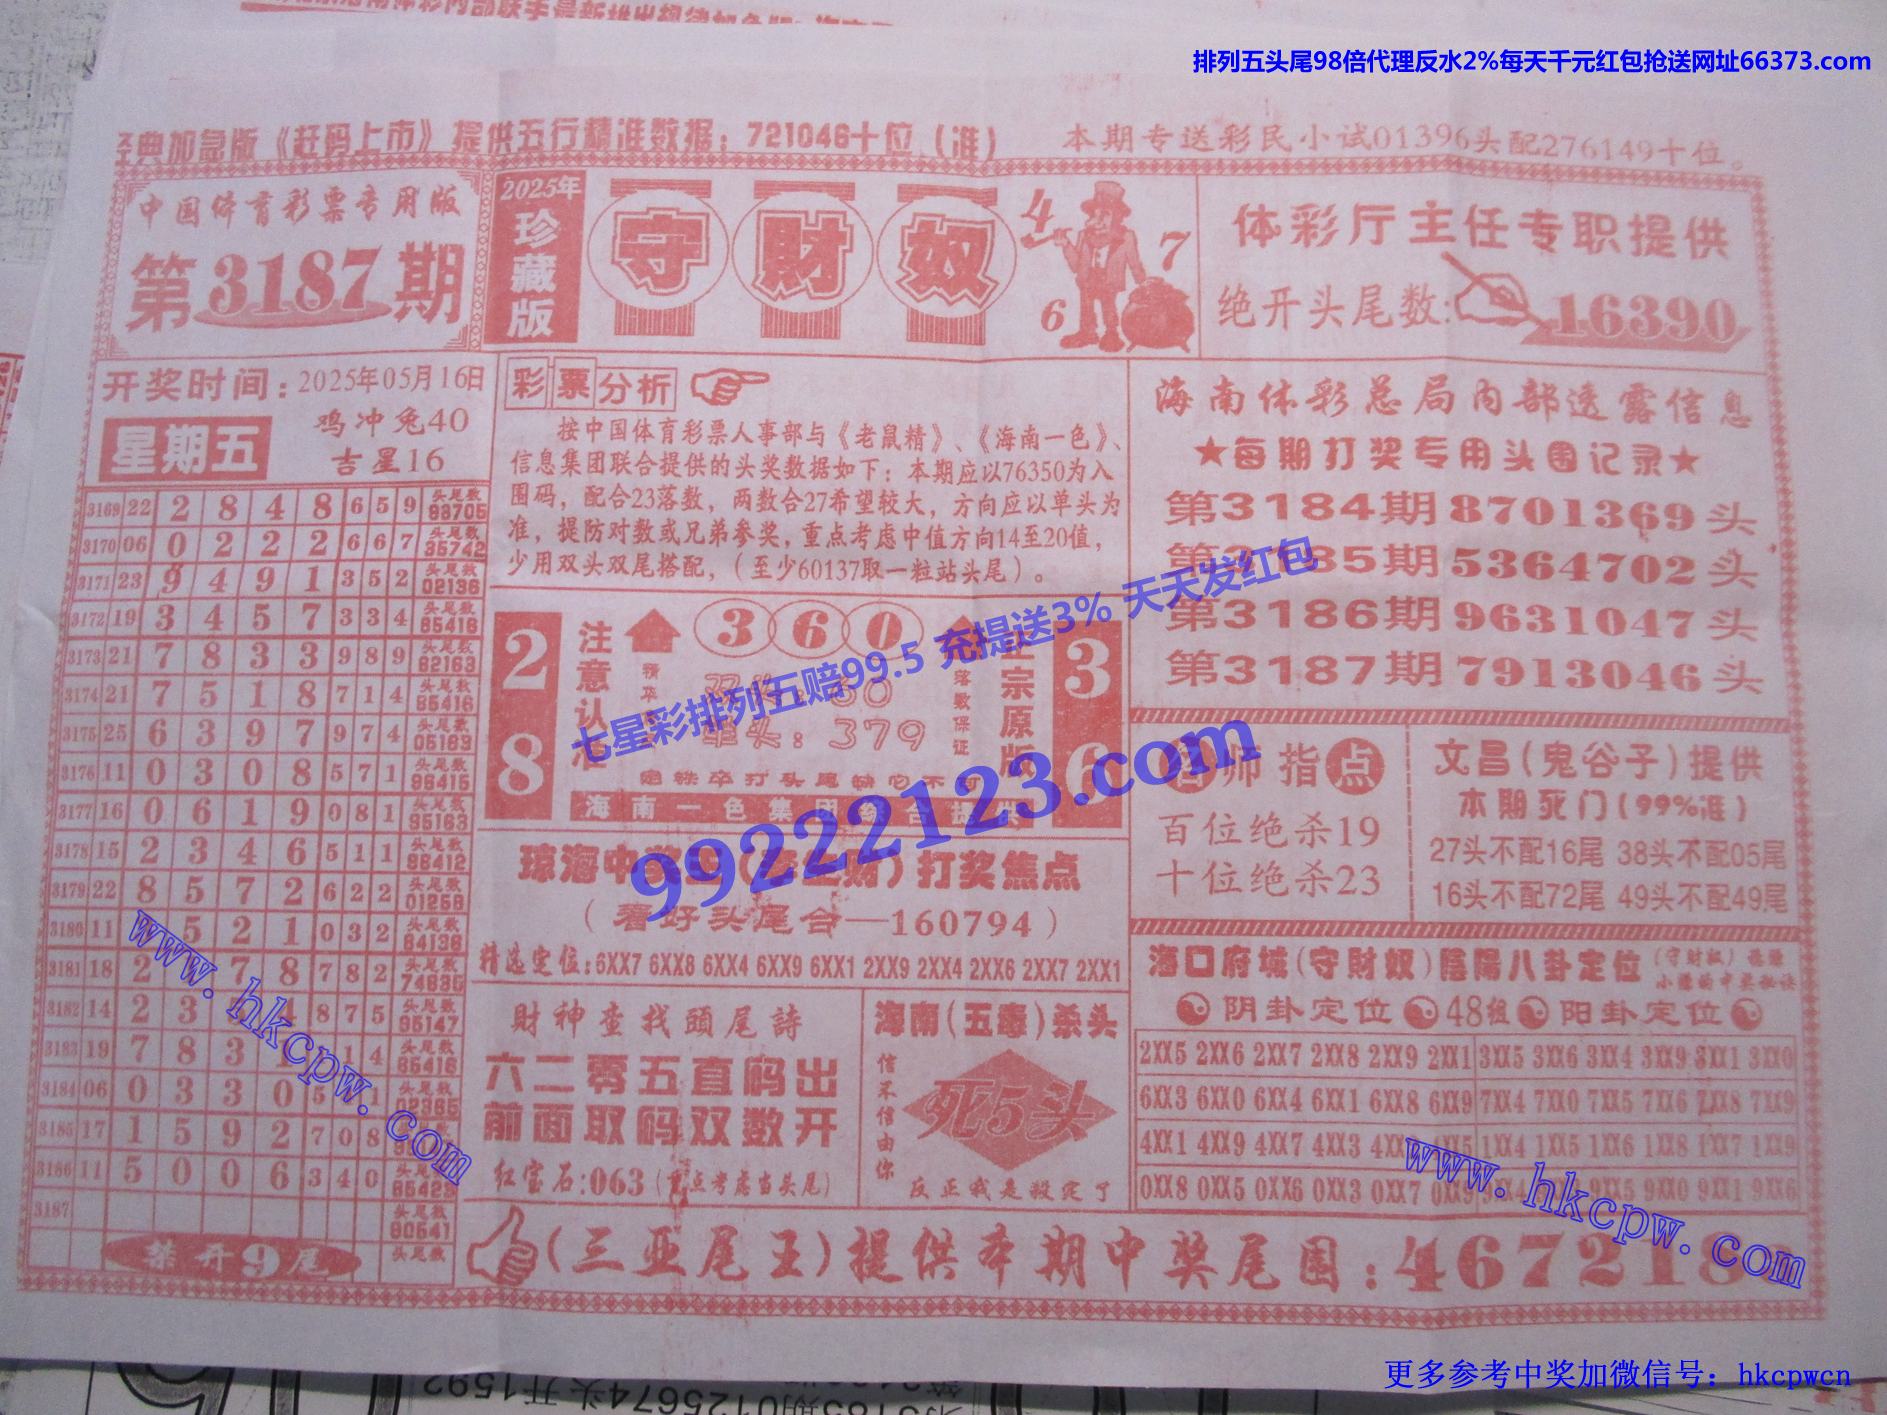 排列五头尾98倍代理反水2%每天千元红包抢送网址66373.com
经典加急版《赶码上市》提供五行精准数据：721046十位（准）
本期专送彩民小试01396头配276149十位。
中国体育彩票专用版
第3187期
2025年
珍藏版
守财奴
4 7 6
体彩厅主任专职提供
绝开头尾数:16390
开奖时间：2025年05月16日
星期五
鸡冲兔40
吉星16
3169 22 2 8 4 8 6 5 9 头尾数 98705
3170 06 0 2 2 2 6 6 7 头尾数 35742
3171 23 9 4 9 1 3 5 2 头尾数 02136
3172 19 3 4 5 7 3 3 4 头尾数 85416
3173 21 7 8 3 3 9 8 9 头尾数 82163
3174 21 7 5 1 8 7 1 4 头尾数 85416
3175 25 6 3 9 7 9 7 4 头尾数 05183
3176 11 0 3 0 8 5 7 1 头尾数 96415
3177 16 0 6 1 9 0 8 1 头尾数 95163
3178 15 2 3 4 6 5 1 1 头尾数 98412
3179 22 8 5 7 2 6 2 2 头尾数 01258
3180 11 5 2 1 0 3 2 头尾数 64138
3181 18 2 7 8 7 8 2 头尾数 74835
3182 14 2 3 4 8 7 5 头尾数 95147
3183 19 7 8 3 1 4 头尾数 85416
3184 06 0 3 3 0 5 1 头尾数 02365
3185 17 1 5 9 2 7 0 8 头尾数
3186 11 5 0 0 6 3 4 0 头尾数 85423
3187 头尾数 80541
禁开9尾 头尾数
彩票分析
按中国体育彩票人事部与《老鼠精》、《海南一色》、
信息集团联合提供的头奖数据如下：本期应以76350为入
围码，配合23落数，两数合27希望较大，方向应以单头为
准，提防对数或兄弟参奖，重点考虑中值方向14至20值，
少用双头双尾搭配，（至少60137取一粒站头尾）。
28
注意认准
360
单头：379
定铁卒打头尾缺它不可
落数保证
正宗原版
36
海南一色集团综合提供
打奖焦点
（看好头尾合—160794）
精选定位:6XX7 6XX8 6XX4 6XX9 6XX1 2XX9 2XX4 2XX6 2XX7 2XX1
财神查找头尾诗
六二零五直码出
前面取码双数开
红宝石:063（重点考虑当头尾）
海南（五毒）杀头
信不信由你
死5头
反正我是敲定了
海南体彩总局内部透露信息
★每期打奖专用头围记录★
第3184期8701369头
第3185期5364702头
第3186期9631047头
第3187期7913046头
名师指点
百位绝杀19
十位绝杀23
文昌（鬼谷子）提供
本期死门（99%准）
27头不配16尾 38头不配05尾
16头不配72尾 49头不配49尾
海口府城（守财奴）阴阳八卦定位
阴卦定位 48组 阳卦定位
2XX5 2XX6 2XX7 2XX8 2XX9 2XX1 3XX5 3XX6 3XX4 3XX9 3XX1 3XX0
6XX3 6XX0 6XX4 6XX1 6XX8 6XX9 7XX4 7XX0 7XX5 7XX6 7XX8 7XX9
4XX1 4XX9 4XX7 4XX3 1XX4 1XX5 1XX6 1XX8 1XX7 1XX9
0XX8 0XX5 0XX6 0XX3 0XX7 0XX9 9XX5 9XX0 9XX1 9XX6
（三亚尾王）提供本期中奖尾围：467218
七星彩排列五赔99.5 充提送3% 天天发红包
99222123.com
www.hkcpw.com
www.hkcpw.com
更多参考中奖加微信号：hkcpwcn